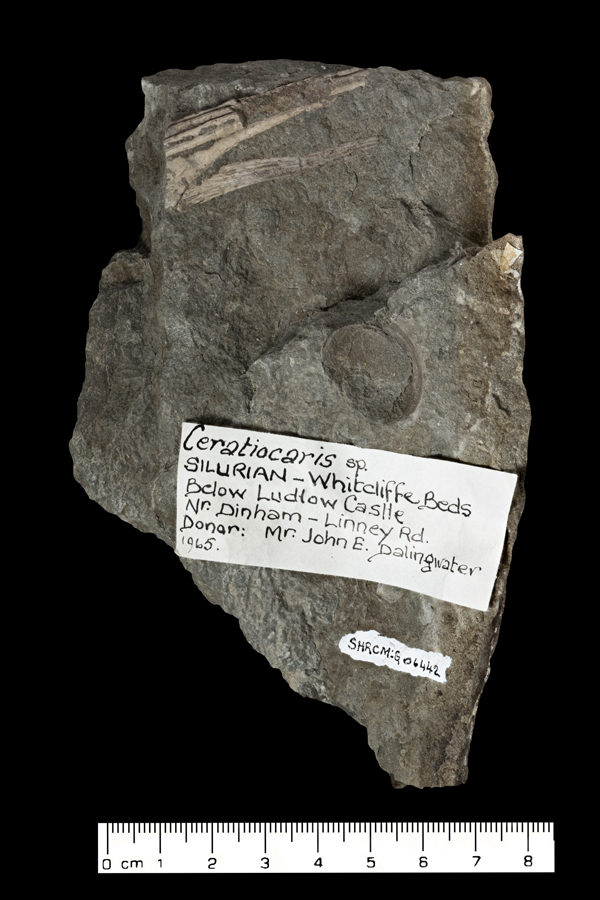 Ceratiocaris sp.
SILURIAN - Whitcliffe Beds
Below Ludlow Castle
Nr. Dinham - Linney Rd.
Donor: Mr. John E. Dalingwater
1965.
SHRCM:G 06442
0 cm 1 2 3 4 5 6 7 8